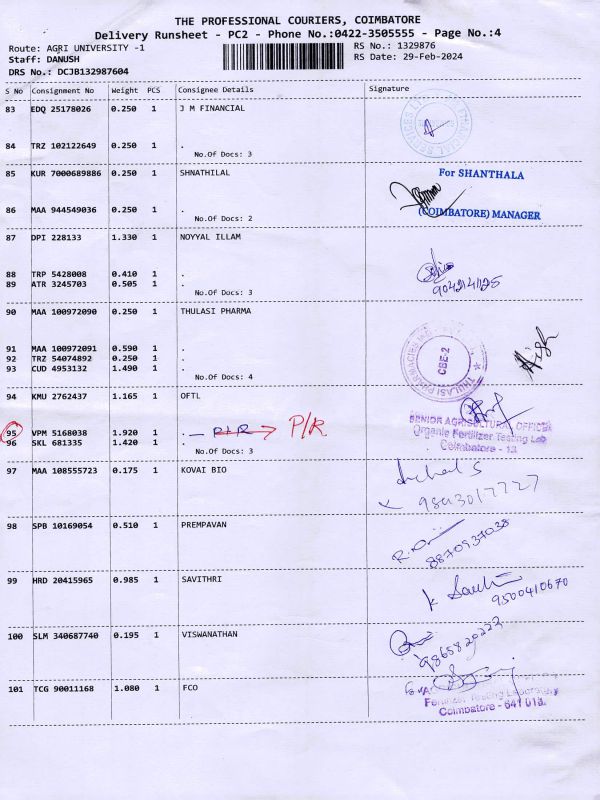 THE PROFESSIONAL COURIERS, COIMBATORE
Delivery Runsheet - PC2 - Phone No.:0422-3505555 - Page No.:4
Route: AGRI UNIVERSITY -1 RS No.: 1329876
Staff: DANUSH RS Date: 29-Feb-2024
DRS No.: DCJB132987604
S No Consignment No Weight PCS Consignee Details Signature
83 EDQ 25178026 0.250 1 J M FINANCIAL
84 TRZ 102122649 0.250 1 .
No.Of Docs: 3
85 KUR 7000689886 0.250 1 SHNATHILAL
For SHANTHALA
86 MAA 944549036 0.250 1 .
(COIMBATORE) MANAGER
No.Of Docs: 2
87 DPI 228133 1.330 1 NOYYAL ILLAM
88 TRP 5428008 0.410 1 .
89 ATR 3245703 0.505 1 .
No.Of Docs: 3
90 MAA 100972090 0.250 1 THULASI PHARMA
91 MAA 100972091 0.590 1 .
92 TRZ 54074892 0.250 1 .
93 CUD 4953132 1.490 1 .
CBE-2
No.Of Docs: 4
94 KMU 2762437 1.165 1 OFTL
SENIOR AGRICULTURAL OFFICER
95 VPM 5168038 1.920 1 . P/R
Organic Fertilizer Testing Lab
96 SKL 681335 1.420 1 .
Coimbatore - 13
No.Of Docs: 3
97 MAA 108555723 0.175 1 KOVAI BIO
98 SPB 10169054 0.510 1 PREMPAVAN
8870937038
99 HRD 20415965 0.985 1 SAVITHRI
9500410670
100 SLM 340687740 0.195 1 VISWANATHAN
9865820222
101 TCG 90011168 1.080 1 FCO
Fertilizer Testing Laboratory
Coimbatore - 641 013.